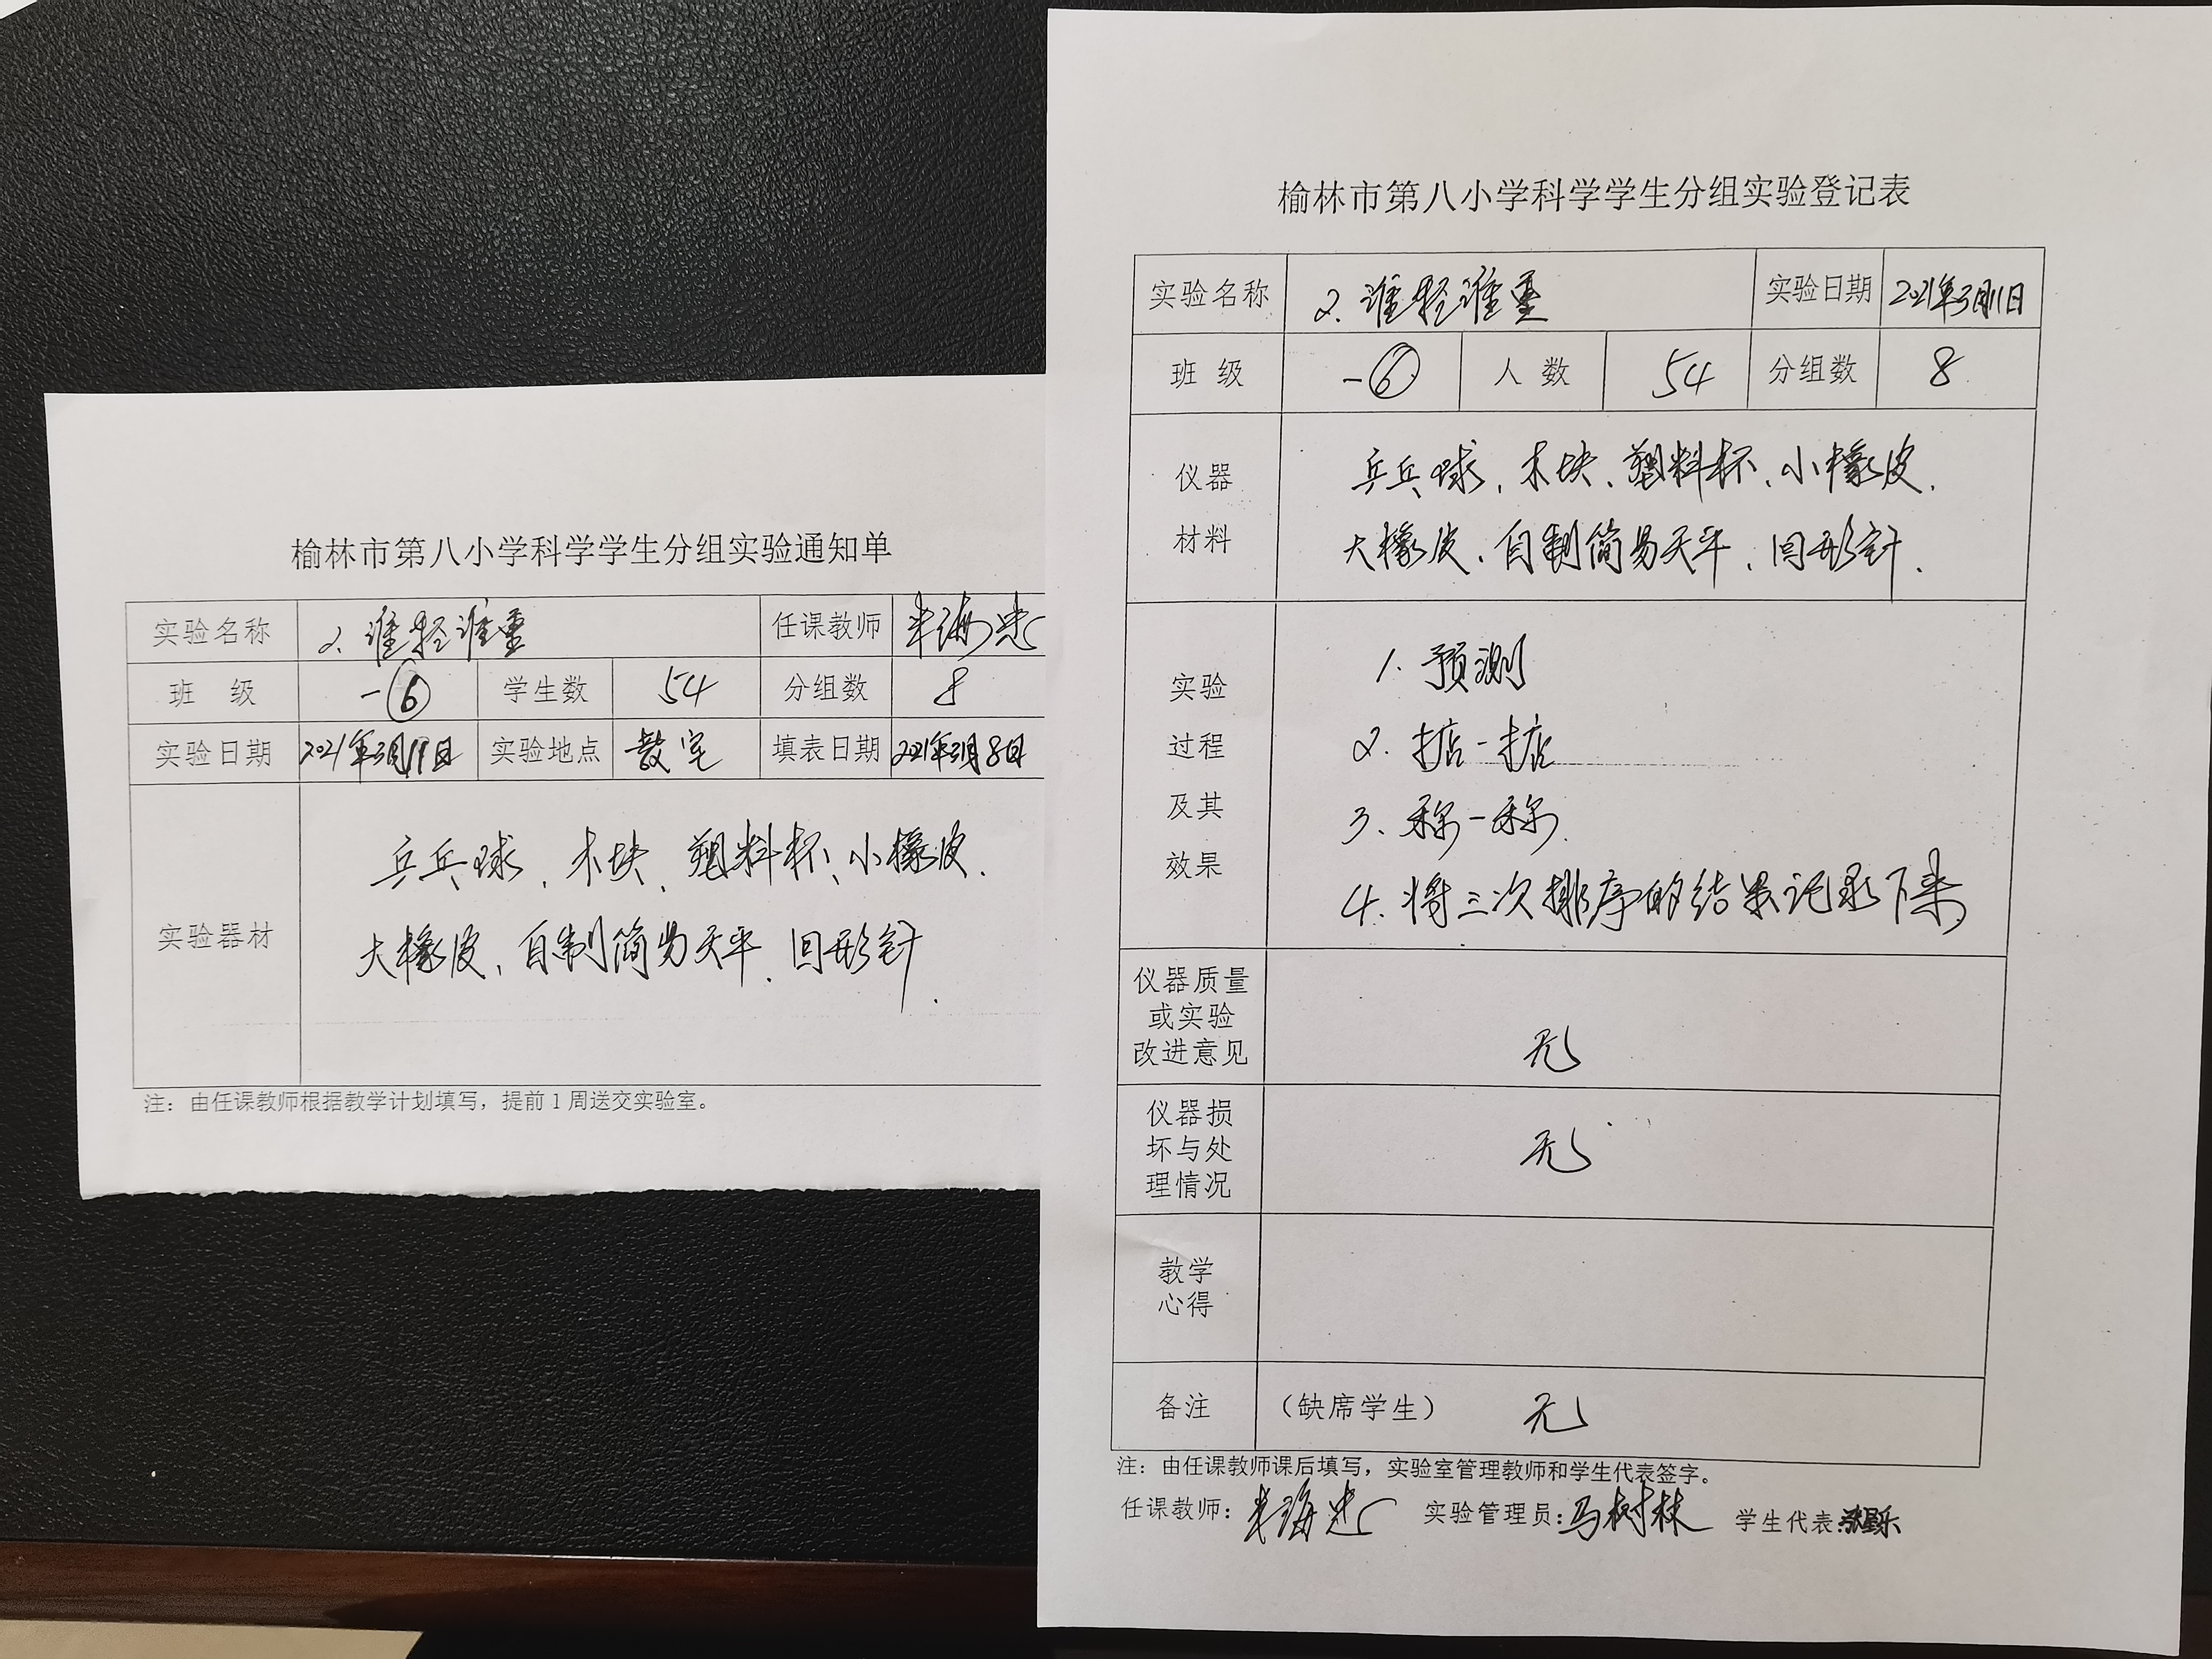 榆林市第八小学科学学生分组实验通知单
实验名称 2. 谁轻谁重 任课教师
班 级 一⑥ 学生数 54 分组数 8
实验日期 2021年3月11日 实验地点 教室 填表日期 2021年3月8日
实验器材
乒乓球、木块、塑料杯、小橡皮、
大橡皮、自制简易天平、回形针.
注：由任课教师根据教学计划填写，提前1周送交实验室。
榆林市第八小学科学学生分组实验登记表
实验名称 2. 谁轻谁重 实验日期 2021年3月11日
班 级 一⑥ 人 数 54 分组数 8
仪器
材料
乒乓球、木块、塑料杯、小橡皮、
大橡皮、自制简易天平、回形针.
实验
过程
及其
效果
1. 预测
2. 掂一掂
3. 称一称.
4. 将三次排序的结果记录下来
仪器质量
或实验
改进意见
无
仪器损
坏与处
理情况
无
教学
心得
备注 （缺席学生） 无
注：由任课教师课后填写，实验室管理教师和学生代表签字。
任课教师： 实验管理员：马树林 学生代表：